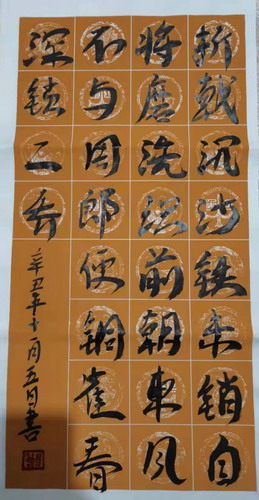 折戟沉沙铁未销自
将磨洗认前朝东风
不与周郎便铜雀春
深锁二乔
辛丑年十月五日书